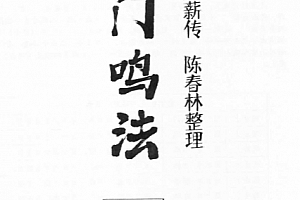 门鸣法
薪传 陈春林整理